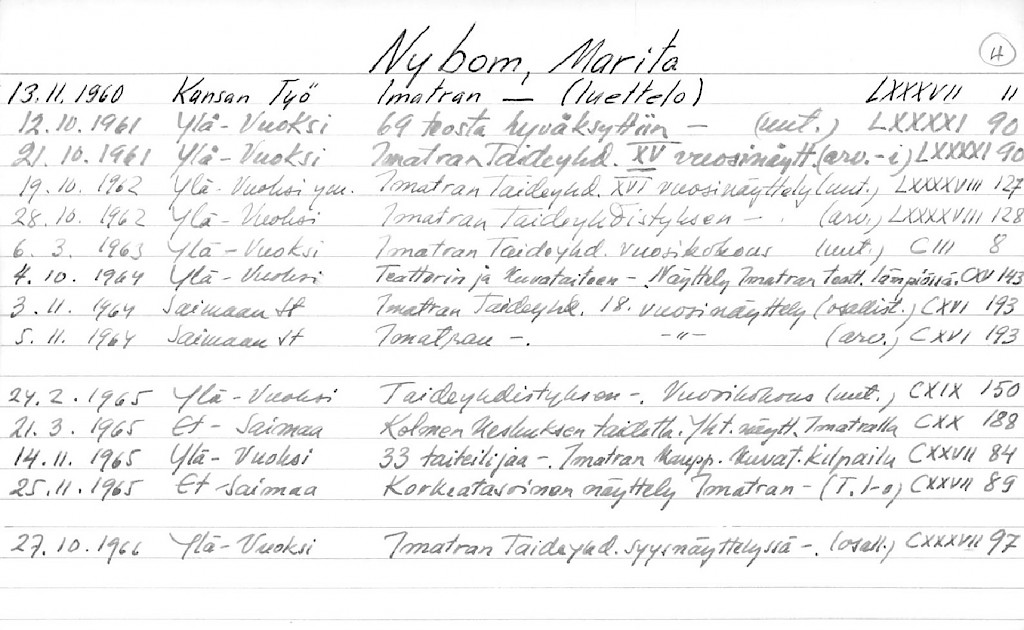 Nybom, Marita 4
13.11.1960 Kansan Työ Imatran — (luettelo) LXXXVII 11
12.10.1961 Ylä-Vuoksi 69 teosta hyväksyttiin — (uut.) LXXXXI 90
21.10.1961 Ylä-Vuoksi Imatran Taideyhd. XV vuosinäytt. (arv.-i) LXXXXI 90
19.10.1962 Ylä-Vuoksi ym. Imatran Taideyhd. XVI vuosinäyttely (uut.) LXXXXVIII 127
28.10.1962 Ylä-Vuoksi Imatran Taideyhdistyksen — . (arv.) LXXXXVIII 128
6.3.1963 Ylä-Vuoksi Imatran Taideyhd. vuosikokous (uut.) CIII 8
4.10.1964 Ylä-Vuoksi Teatterin ja kuvataiteen — . Näyttely Imatran teatt. lämpiössä. CXV 143
3.11.1964 Saimaan St Imatran Taideyhd. 18. vuosinäyttely (osedist.) CXVI 193
5.11.1964 Saimaan St Imatran — . —"— (arv.) CXVI 193
24.2.1965 Ylä-Vuoksi Taideyhdistyksen — . Vuosikokous (uut.) CXIX 150
21.3.1965 Et-Saimaa Kolmen keskuksen taidetta. Yht. näytt. Imatralla CXX 188
14.11.1965 Ylä-Vuoksi 33 taiteilijaa — . Imatran kaupp. kuvat. kilpailu CXXVII 84
25.11.1965 Et-Saimaa Korkeatasoinen näyttely Imatran — (T. I-o) CXXVII 89
27.10.1966 Ylä-Vuoksi Imatran Taideyhd. syysnäyttelyssä — . (osall.) CXXXVII 97